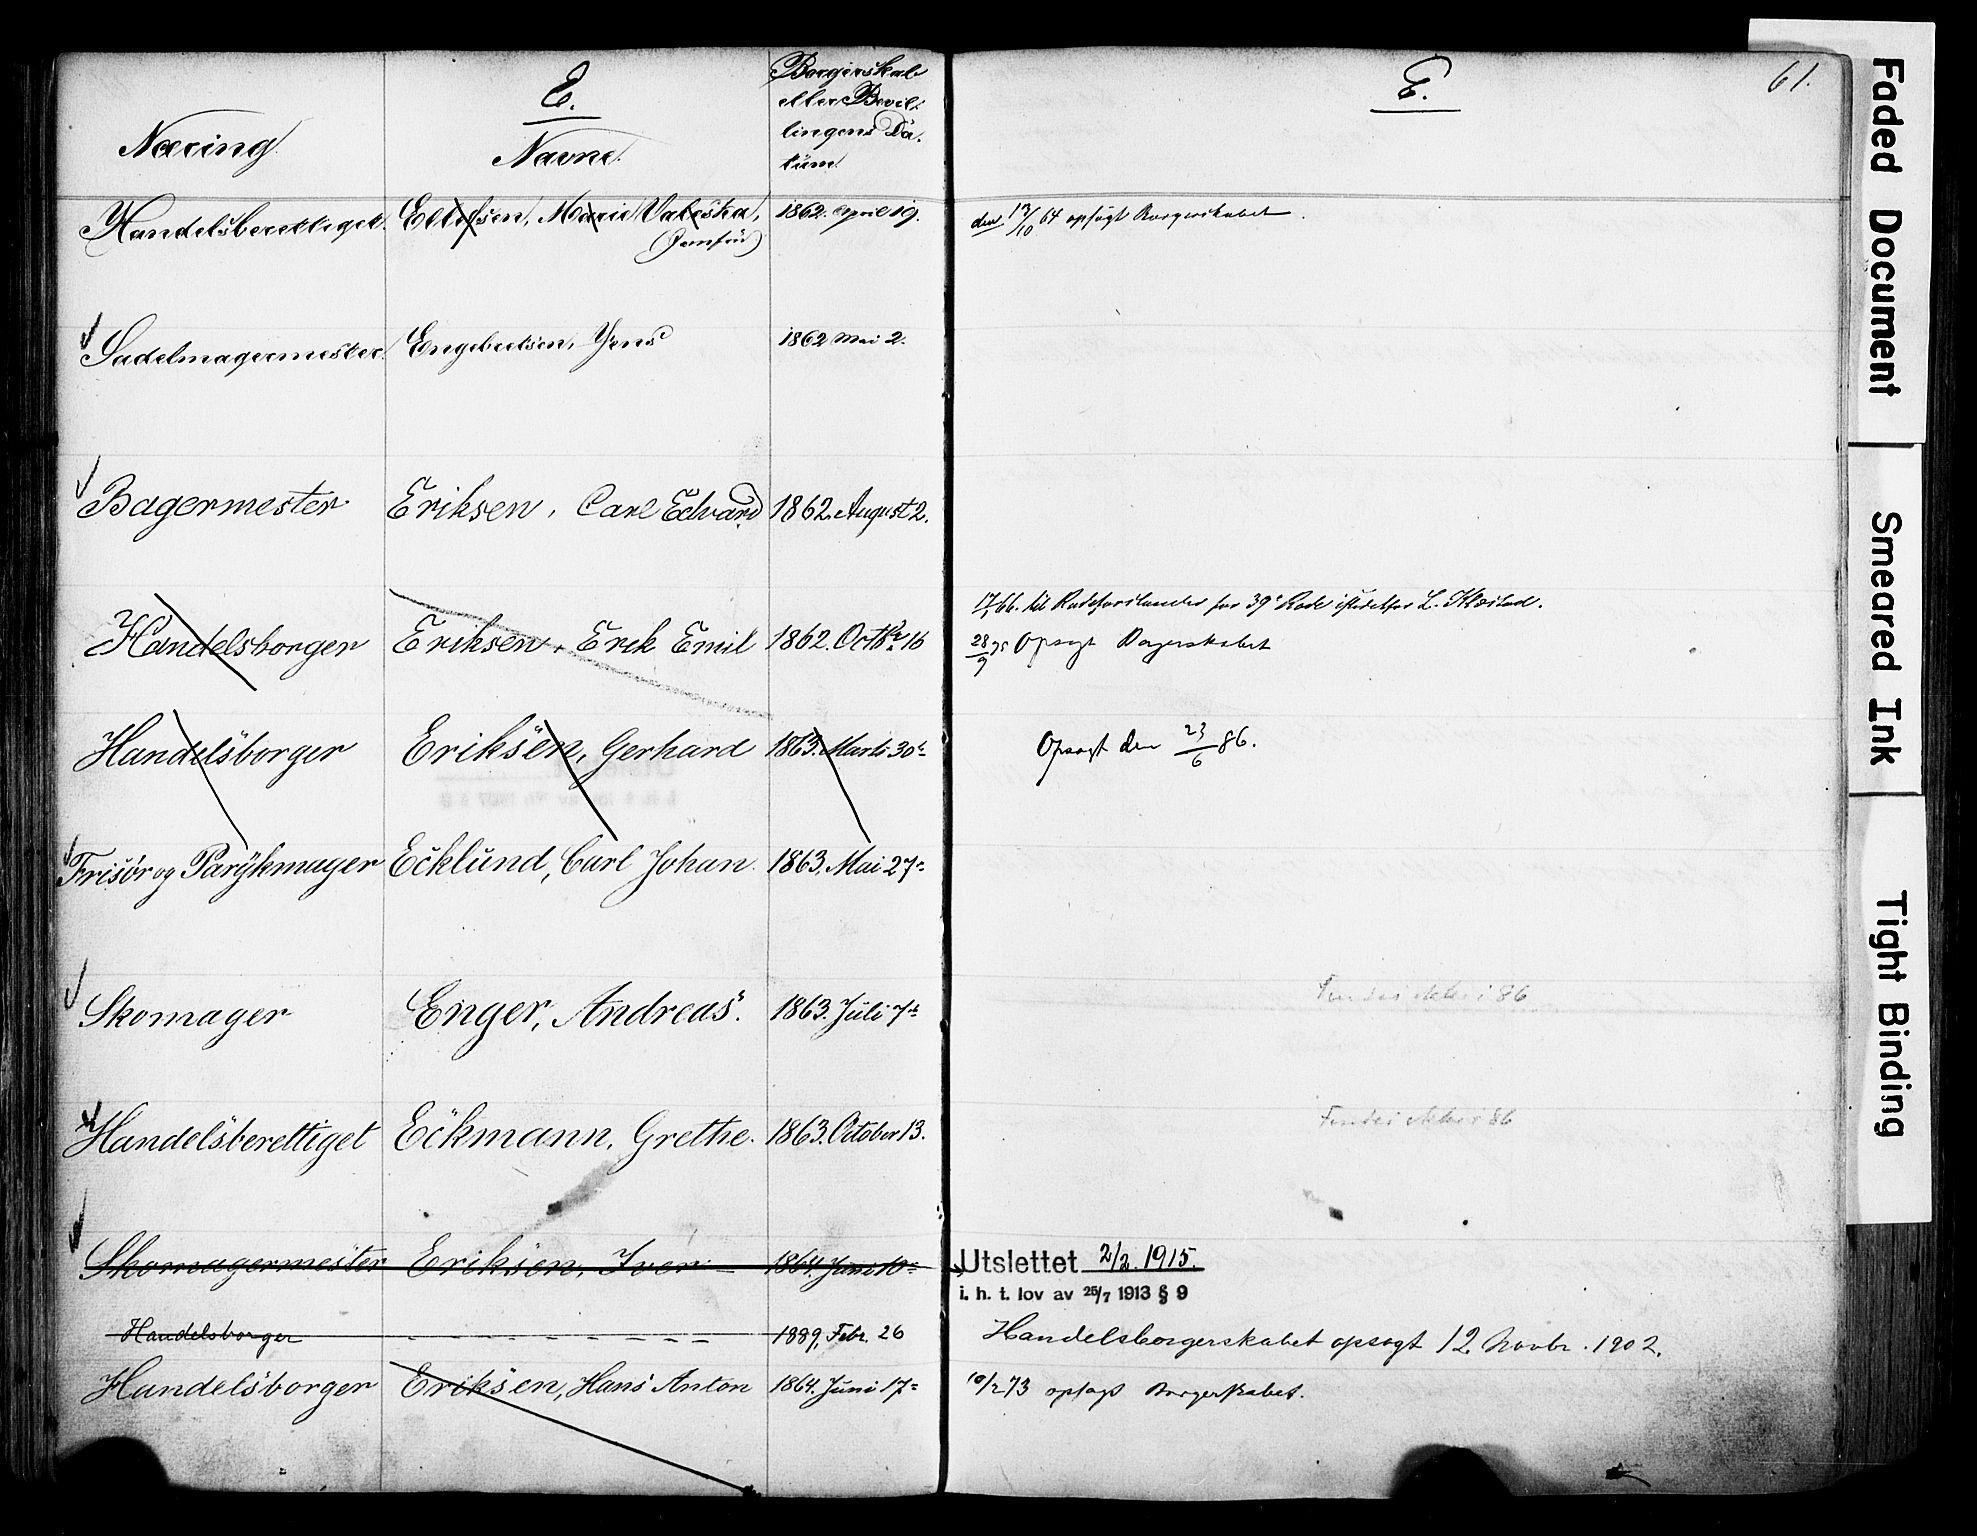 E.
Næring
Navne.
Borgerskab
eller Bevil-
lingens Da-
tüm
E.
61.
Handelsberettiget. Ellefsen, Marie Valeska, 1862. April 19. den 13/10 64 opsagt Borgerskabet.
(Jomfrü)
Sadelmagermester. Engebretsen, Jens 1862 Mai 2.
Bagermester Eriksen, Carl Edvard 1862. August 2.
66. til Rodeforstander for 39te Rode istedetfor L.
Handelsborger Eriksen, Erik Emil 1862. Octbr 16 28/9 75 Opsagt Borgerskabet
Handelsborger Eriksen, Gerhard 1863. Marts 30te Opsagt den 23/6 86.
Frisör og Parykmager Ecklünd, Carl Johan. 1863. Mai 27de
Skomager Enger, Andreas. 1863. Juli 7de
Findes ikke i 86
Handelsberettiget Eckmann, Grethe. 1863. October 13.
Findes ikke i 86
Skomagermester Eriksen, Iver 1864. Juni 10de Utslettet 2/2 1915.
i. h. t. lov av 25/7 1913 § 9
Handelsborger — — — 1889, Febr. 26 Handelsborgerskabet opsagt 12. Novbr. 1902.
Handelsborger Eriksen, Hans Anton 1864. Juni 17de 10/2 73 opsagt Borgerskabet.
Faded Document
Smeared Ink
Tight Binding